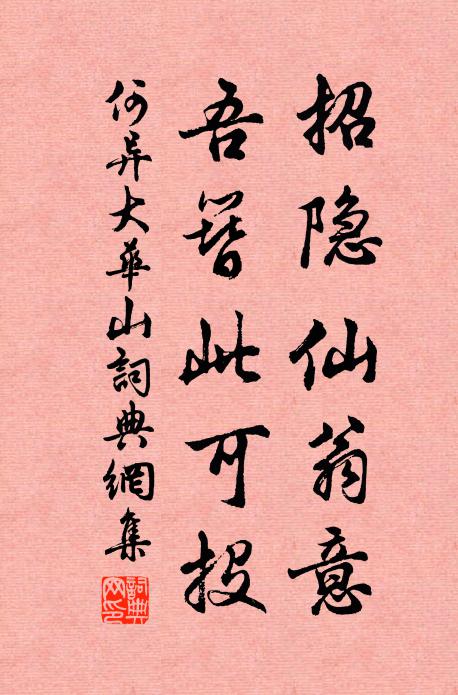 招隐仙翁意
吾簪此可投
何异大华山詞典網集
詞典網印